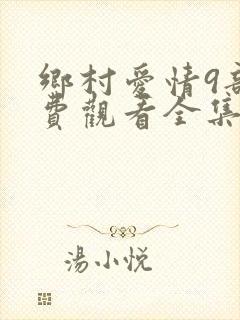 鄉村愛情9
費觀看全集
湯小悦